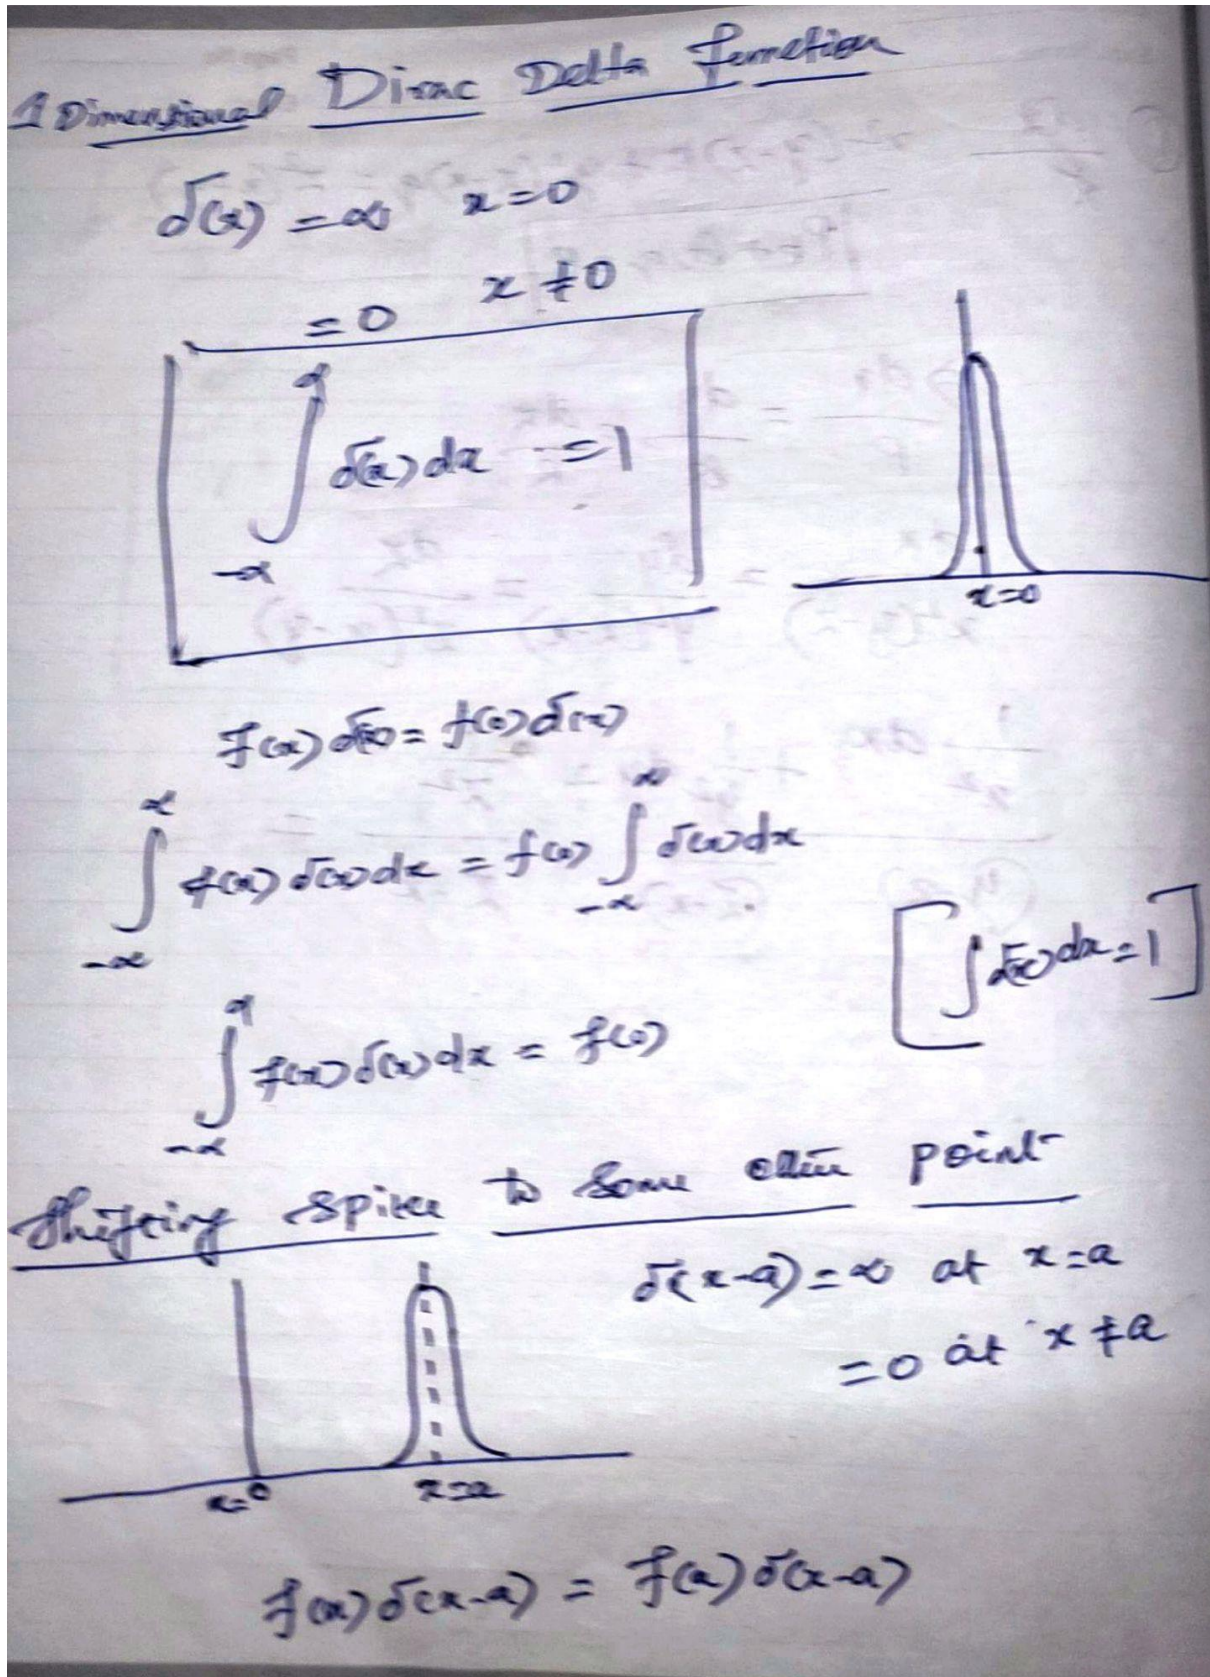 1 Dimensional Dirac Delta function
δ(x) = ∞ x=0
= 0 x ≠ 0
∫_{-∞}^{∞} δ(x) dx = 1
x=0
f(x) δ(x) = f(0) δ(x)
∫_{-∞}^{∞} f(x) δ(x) dx = f(0) ∫_{-∞}^{∞} δ(x) dx
[∫ δ(x) dx = 1]
∫_{-∞}^{∞} f(x) δ(x) dx = f(0)
Shifting spike to some other point
δ(x-a) = ∞ at x=a
= 0 at x ≠ a
x=0 x=a
f(x) δ(x-a) = f(a) δ(x-a)